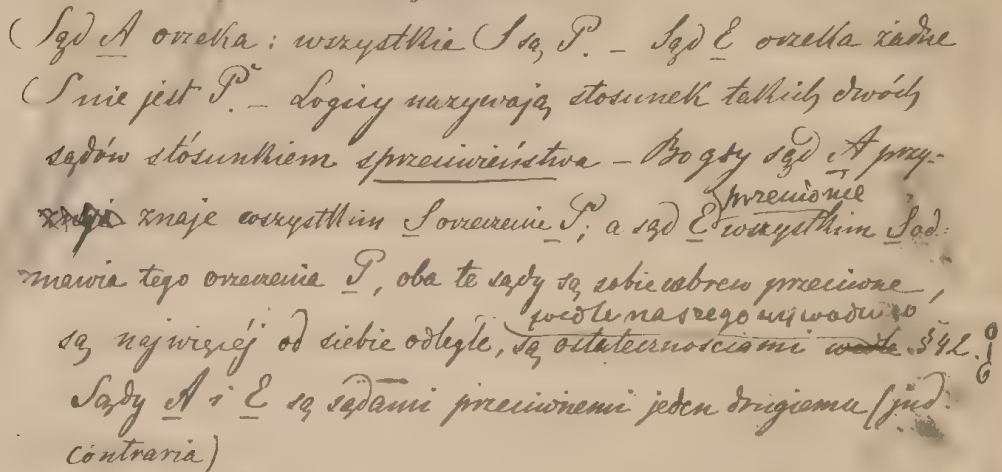 Sąd A orzeka: wszystkie S są P. – Sąd E orzeka żadne
S nie jest P. – Logicy nazywają stosunek takich dwóch
sądów stósunkiem sprzeciwieństwa – Bo gdy sąd A przy-
znaje wszystkim S orzeczenie P; a sąd E przeciwnie wszystkim S od-
mawia tego orzeczenia P, oba te sądy są sobie wbrew przeciwne,
są najwięcéj od siebie odległe, są ostatecznościami wedle naszego wywodu § 42.
Sądy A i E są sądami przeciwnemi jeden drugiemu (jud.
contraria)